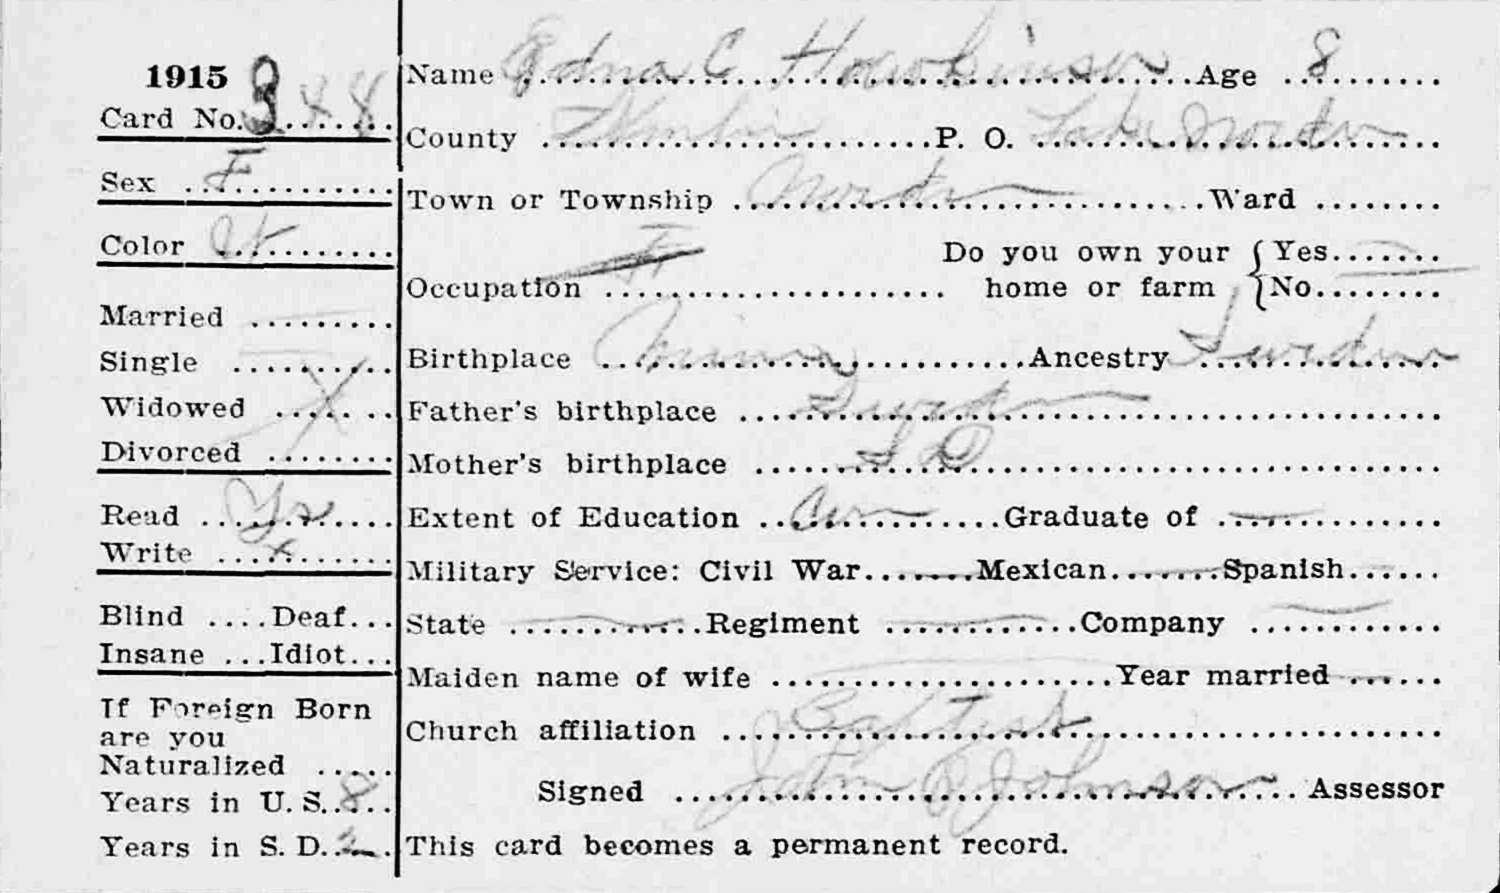 1915
Card No. 344
Sex F
Color W
Married
Single X
Widowed
Divorced
Read Yes
Write
Blind .... Deaf...
Insane ... Idiot...
If Foreign Born
are you
Naturalized .....
Years in U. S. 8
Years in S. D. 2
Name Edna C Hawkinson Age 8
County Hamlin P. O. Lake Norden
Town or Township Norden Ward
Occupation
Do you own your { Yes
home or farm { No
Birthplace Minn Ancestry Sweden
Father's birthplace Sweden
Mother's birthplace S D
Extent of Education Com Graduate of
Military Service: Civil War Mexican Spanish
State Regiment Company
Maiden name of wife Year married
Church affiliation Baptist
Signed John Johnson Assessor
This card becomes a permanent record.